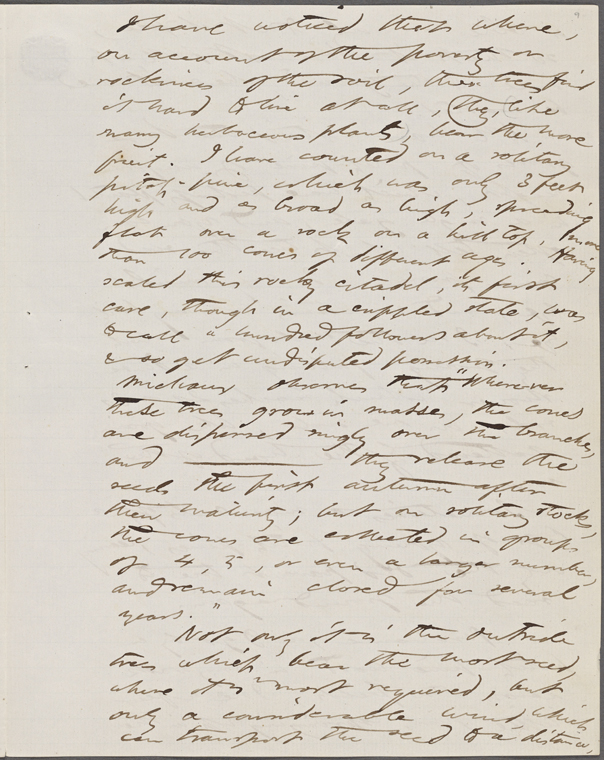 I have noticed that where,
on account of the poverty or
rockiness of the soil, these trees find
it hard to live at all, they, like
many herbaceous plants, bear the more
fruit. I have counted on a solitary
pitch-pine, which was only 3 feet
high and as broad as high, spreading
flat over a rock on a hill top, more
than 100 cones of different ages. Having
scaled this rocky citadel, its first
care, though in a crippled state, was
to call a hundred followers about it,
& so get undisputed possession.
Michaux observes that "Wherever
these trees grow in masses, the cones
are dispersed singly over the branches,
and they release the
seeds the first autumn after
their maturity; but on solitary stocks,
the cones are collected in groups
of 4, 5, or even a larger number,
and remain closed for several
years."
Not only it is the outside
trees which bear the most seed,
where it is most required, but
only a considerable wind, which
can transport the seed to a distance,